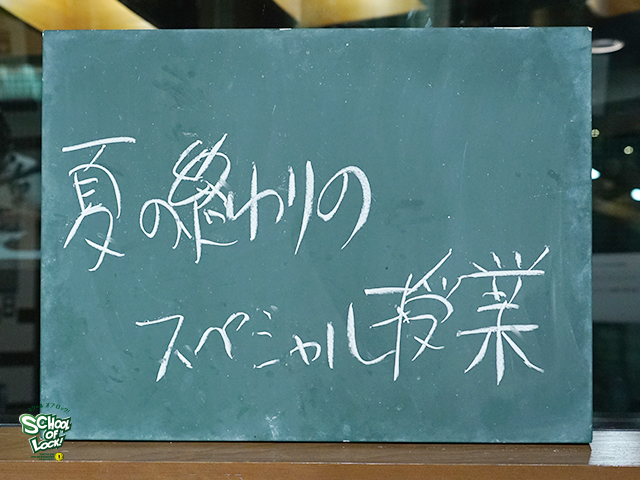 夏の終わりの
スペシャル授業
SCHOOL
OF
LOCK!